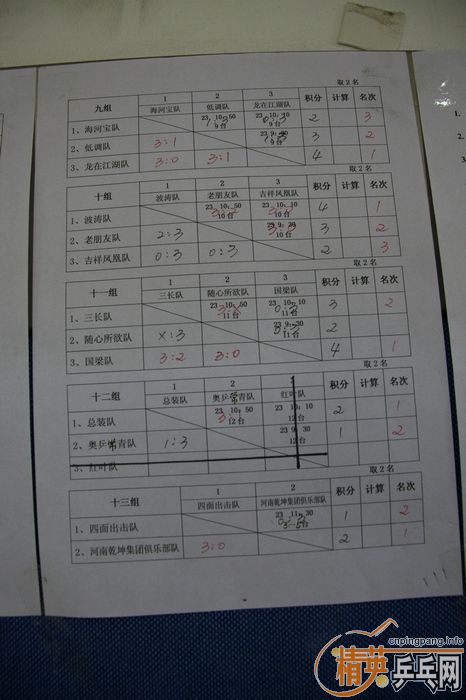 取2名
九组 1 2 3 积分 计算 名次
海河宝队 低调队 龙在江湖队
1、海河宝队 23 10:50 9台 23 10:10 9台 2 3
2、低调队 3:1 23 9:30 9台 3 2
3、龙在江湖队 3:0 3:1 4 1
取2名
十组 1 2 3 积分 计算 名次
波涛队 老朋友队 吉祥凤凰队
1、波涛队 23 10:50 10台 23 10:10 10台 4 1
2、老朋友队 2:3 23 9:30 10台 3 2
3、吉祥凤凰队 0:3 0:3 2 3
取2名
十一组 1 2 3 积分 计算 名次
三长队 随心所欲队 国梁队
1、三长队 23 10:50 11台 23 10:10 11台 3 2
2、随心所欲队 X:3 23 9:30 11台
3、国梁队 3:2 3:0 4 1
取2名
十二组 1 2 3 积分 计算 名次
总装队 奥乒常青队 红叶队
1、总装队 23 10:50 12台 23 10:10 12台 2 1
2、奥乒常青队 1:3 23 9:30 12台 1 2
3、红叶队
取2名
十三组 1 2 积分 计算 名次
四面出击队 河南乾坤集团俱乐部队
1、四面出击队 23 11:30 1 2
2、河南乾坤集团俱乐部队 3:0 2 1
cnpingpang.info
精英乒乓网